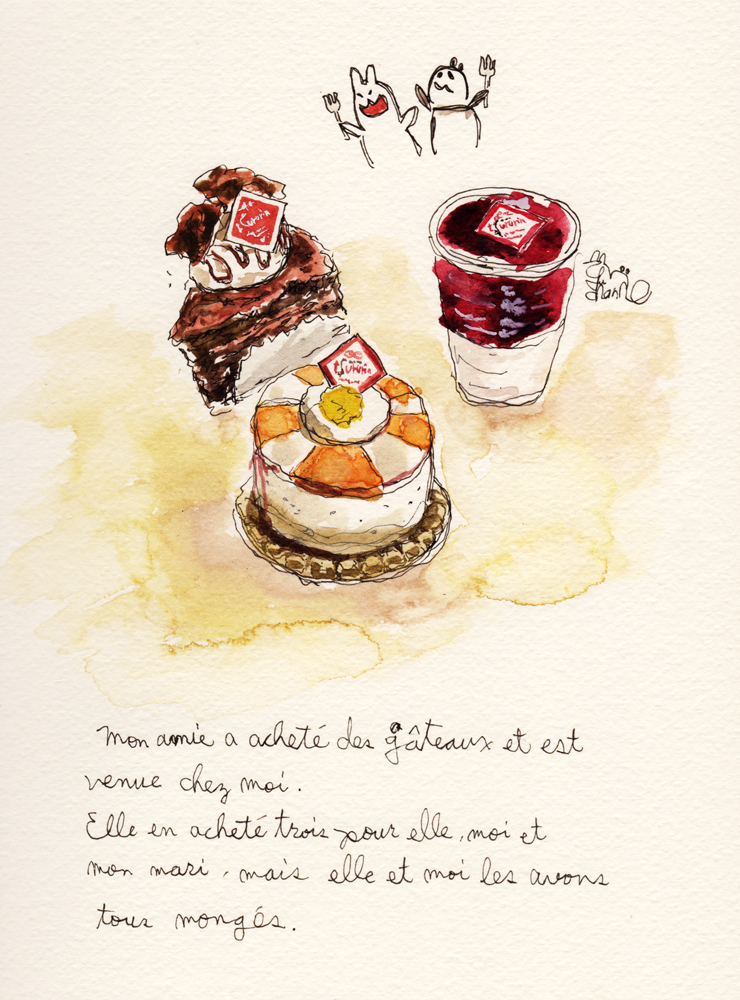 Mon amie a acheté des gâteaux et est
venue chez moi.
Elle en acheté trois pour elle, moi et
mon mari, mais elle et moi les avons
tous mongés.